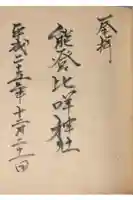 奉拝
能登比咩神社
平成二十五年十二月二十二日